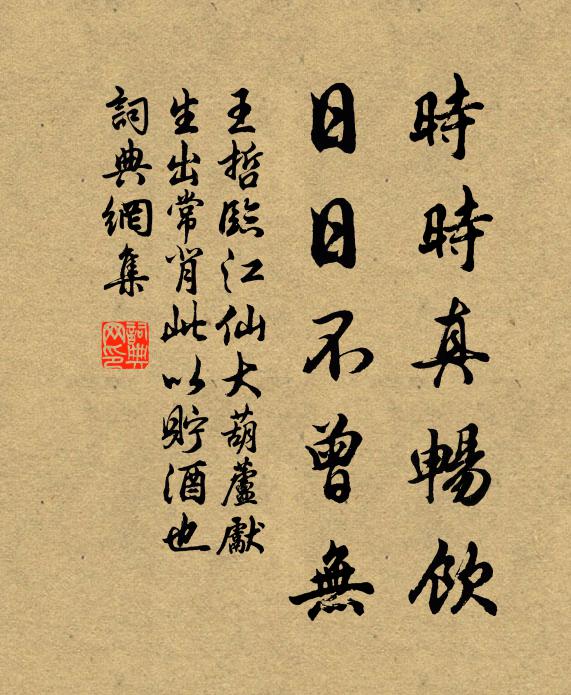 時時真暢飲
日日不曾無
王哲臨江仙大葫蘆獻
生出常肖此以貯酒也
詞典網集
詞典网印